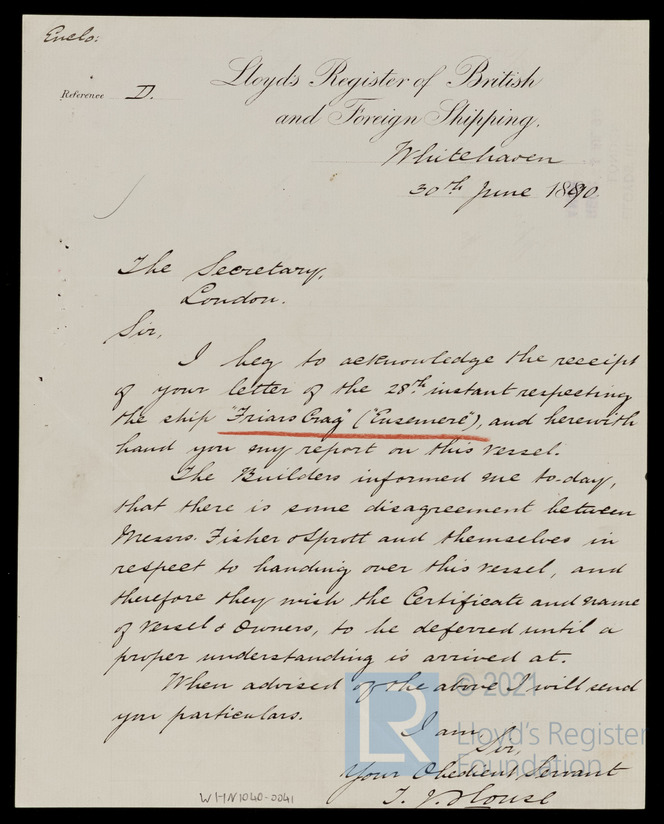 Enclo:
Reference D.
Lloyds Register of British
and Foreign Shipping.
Whitehaven
30th June 1890
The Secretary,
London.
Sir,
I beg to acknowledge the receipt
of your letter of the 28th instant respecting
the ship "Friars Crag" ("Eusemere"), and herewith
hand you my report on this vessel.
The Builders informed me to-day,
that there is some disagreement between
Messrs. Fisher & Sprott and themselves in
respect to handing over this vessel, and
therefore they wish the Certificate and name
of vessel & Owners, to be deferred until a
proper understanding is arrived at.
When advised of the above I will send
you particulars.
I am
Sir,
Your Obedient Servant
T. J. House
WHN1040-0041
LR
© 2021
Lloyd's Register
Foundation